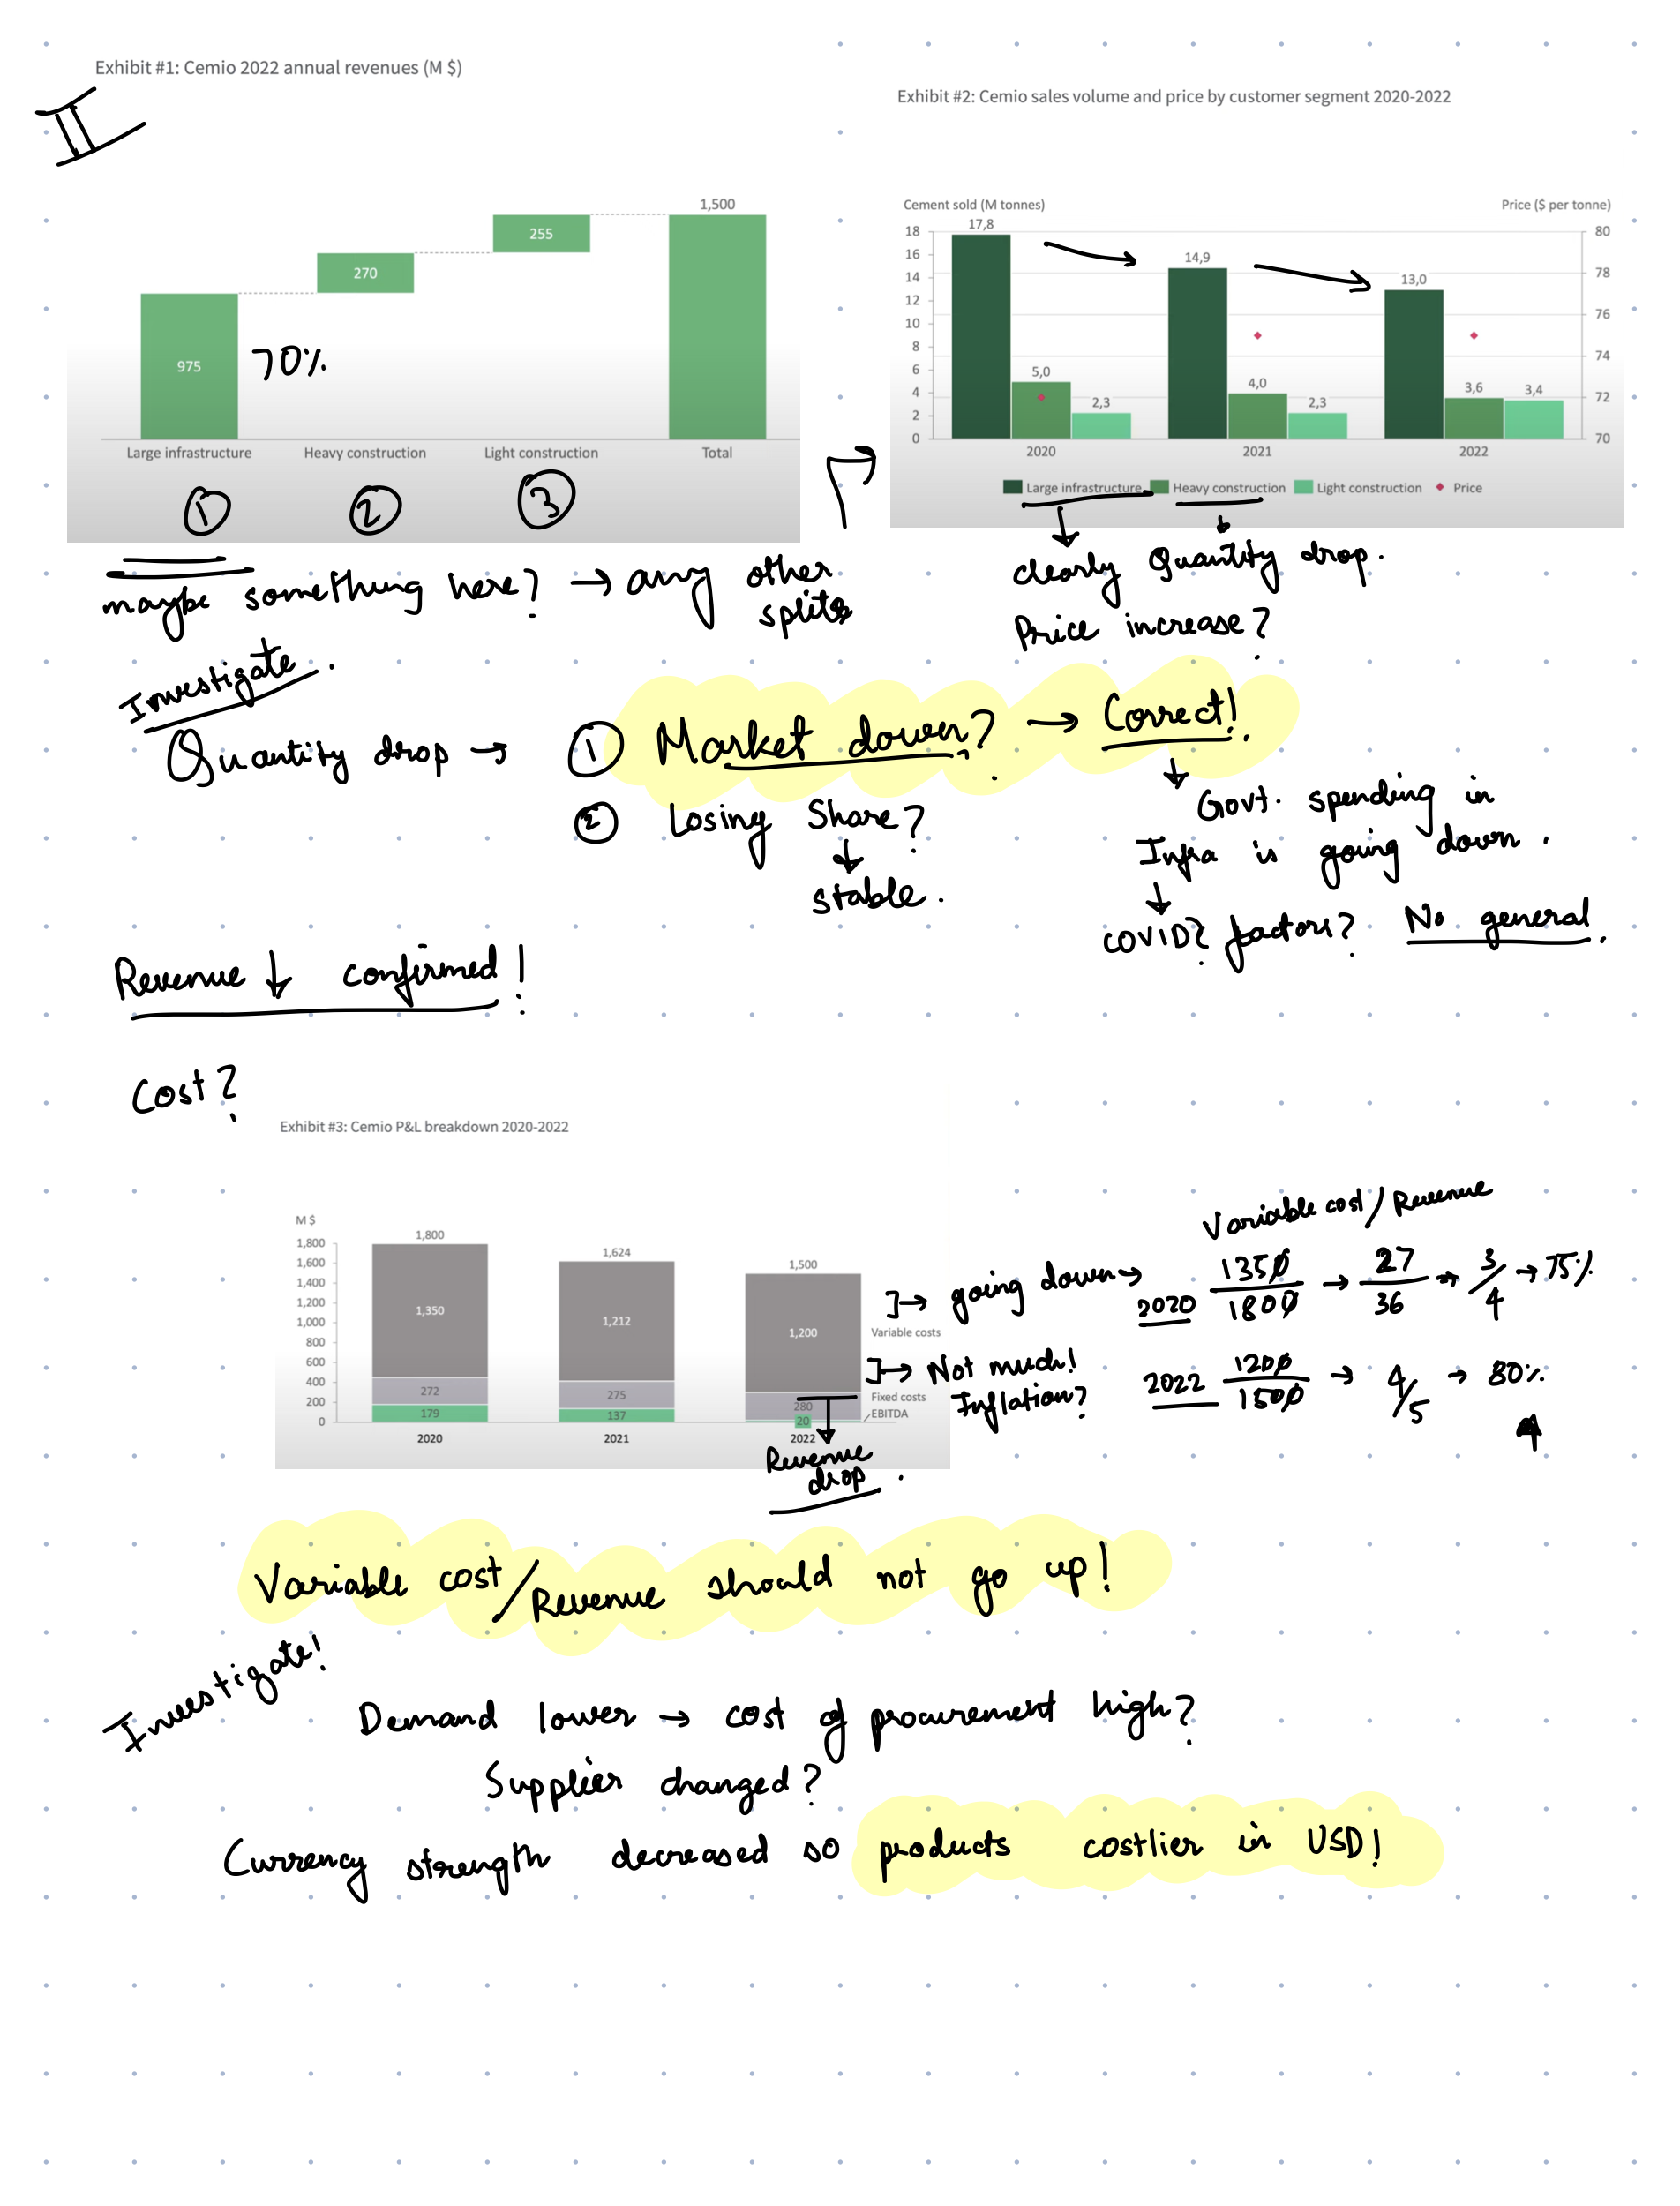 Exhibit #1: Cemio 2022 annual revenues (M $)
II
1,500
255
270
975
70%
Large infrastructure
Heavy construction
Light construction
Total
1
2
3
maybe something here? → any other
splits
Investigate.
Exhibit #2: Cemio sales volume and price by customer segment 2020-2022
Cement sold (M tonnes)
Price ($ per tonne)
18
16
14
12
10
8
6
4
2
0
80
78
76
74
72
70
17,8
5,0
2,3
14,9
4,0
2,3
13,0
3,6
3,4
2020
2021
2022
Large infrastructure
Heavy construction
Light construction
Price
clearly Quantity drop.
Price increase?
Quantity drop → ① Market down? → Correct!
② Losing Share?
↓
stable.
↓
Govt. spending in
Infra is going down.
↓
COVID? factors? No general.
Revenue ↓ confirmed!
Cost?
Exhibit #3: Cemio P&L breakdown 2020-2022
M $
1,800
1,600
1,400
1,200
1,000
800
600
400
200
0
1,800
1,350
272
179
1,624
1,212
275
137
1,500
1,200
280
20
2020
2021
2022
Variable costs
Fixed costs
EBITDA
Revenue
drop.
Variable cost/Revenue
going down → 2020 1350/1800 → 27/36 → 3/4 → 75%
Not much!
Inflation?
2022 1200/1500 → 4/5 → 80%
Variable cost/Revenue should not go up!
Investigate!
Demand lower → cost of procurement high?
Supplier changed?
Currency strength decreased so products costlier in USD!